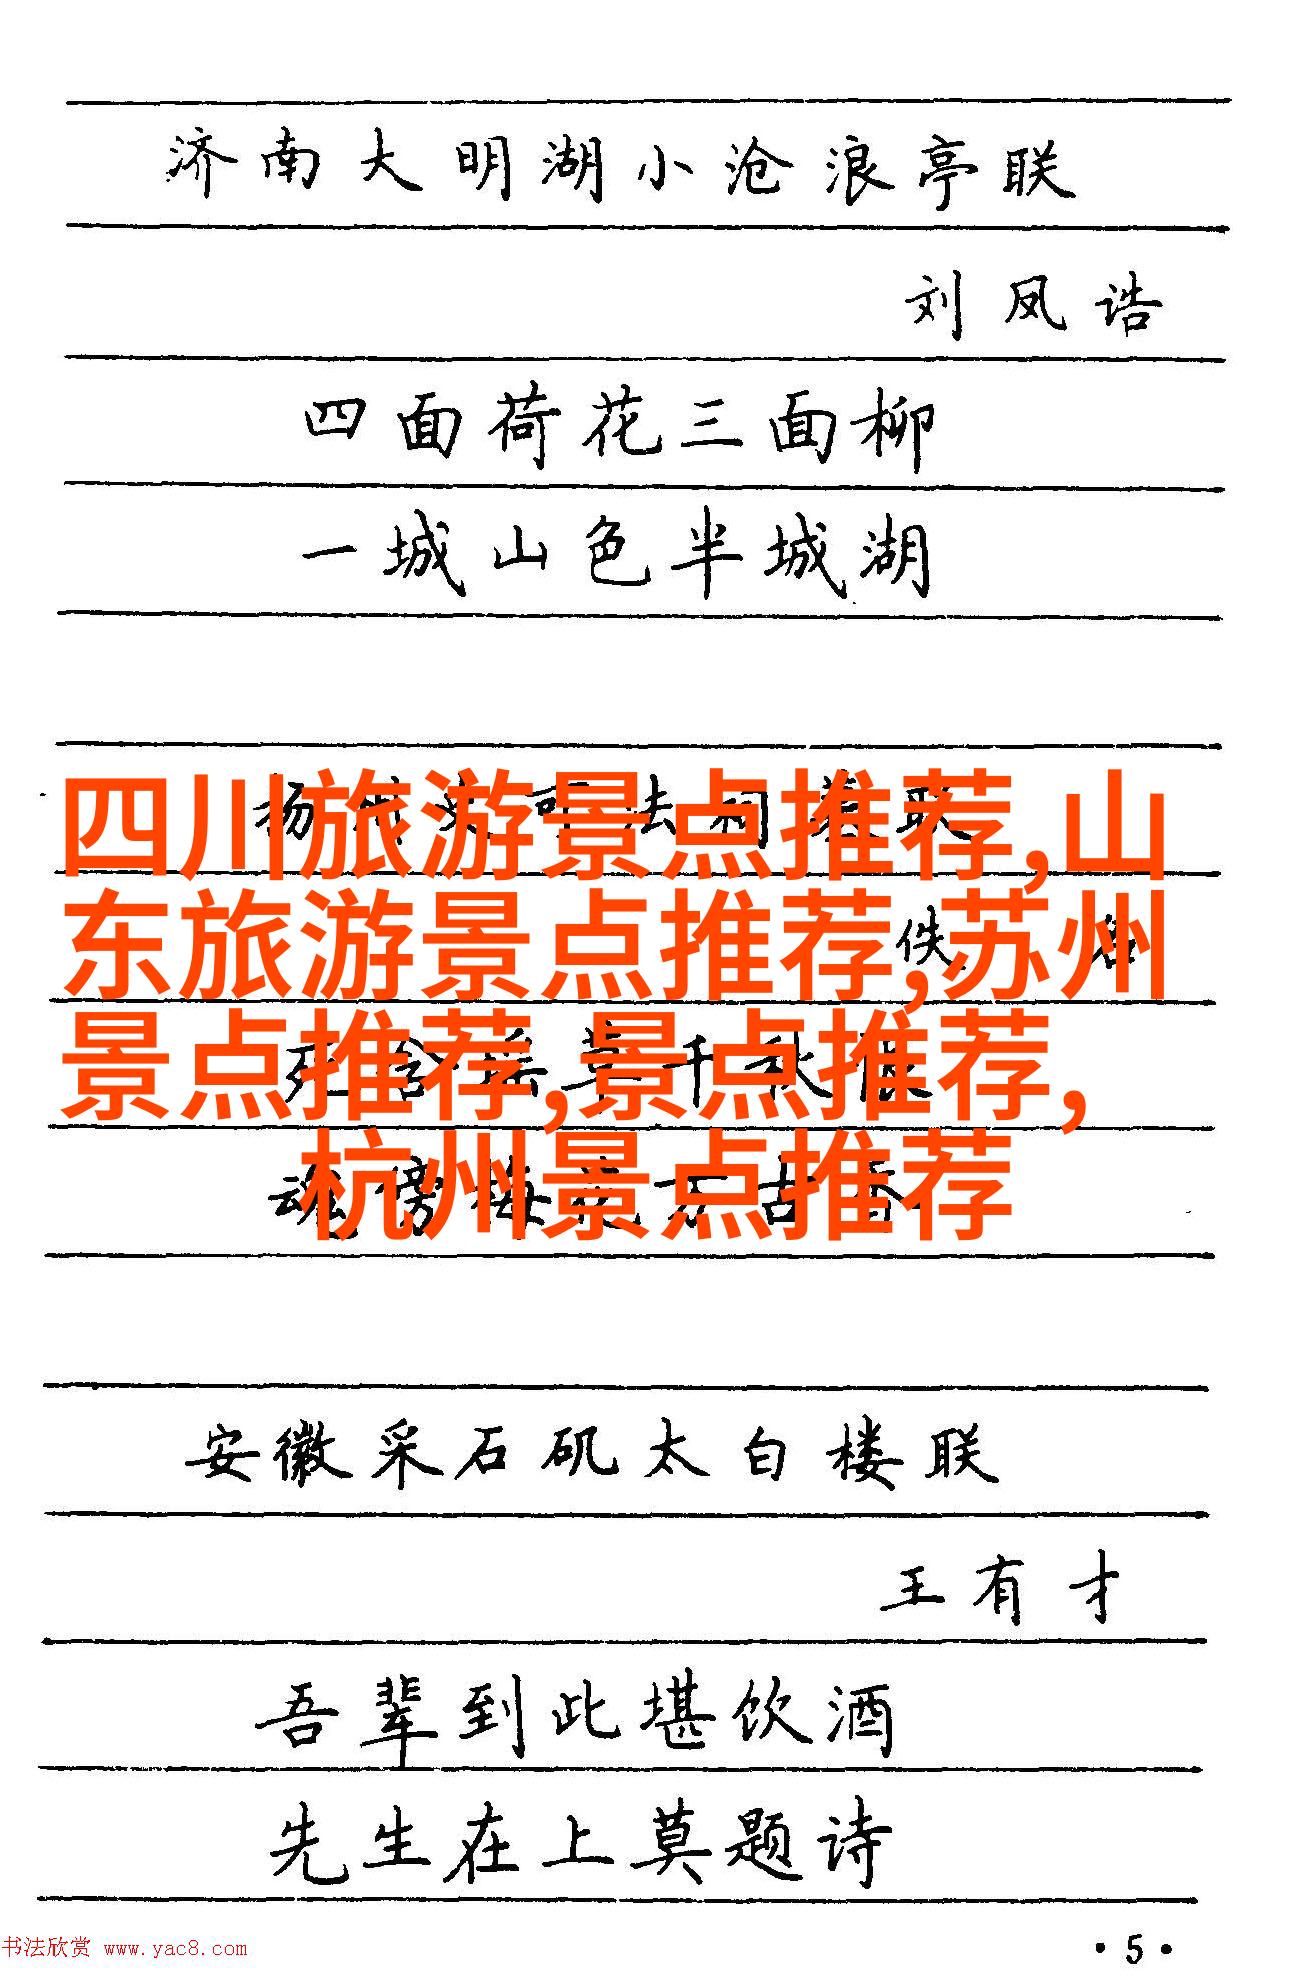 济南大明湖小沧浪亭联
刘凤诰
四面荷花三面柳
一城山色半城湖
四川旅游景点推荐,山
东旅游景点推荐,苏州
景点推荐,景点推荐,
杭州景点推荐
安徽采石矶太白楼联
王有才
吾辈到此堪饮酒
先生在上莫题诗
书法欣赏 www.yac8.com
·5·